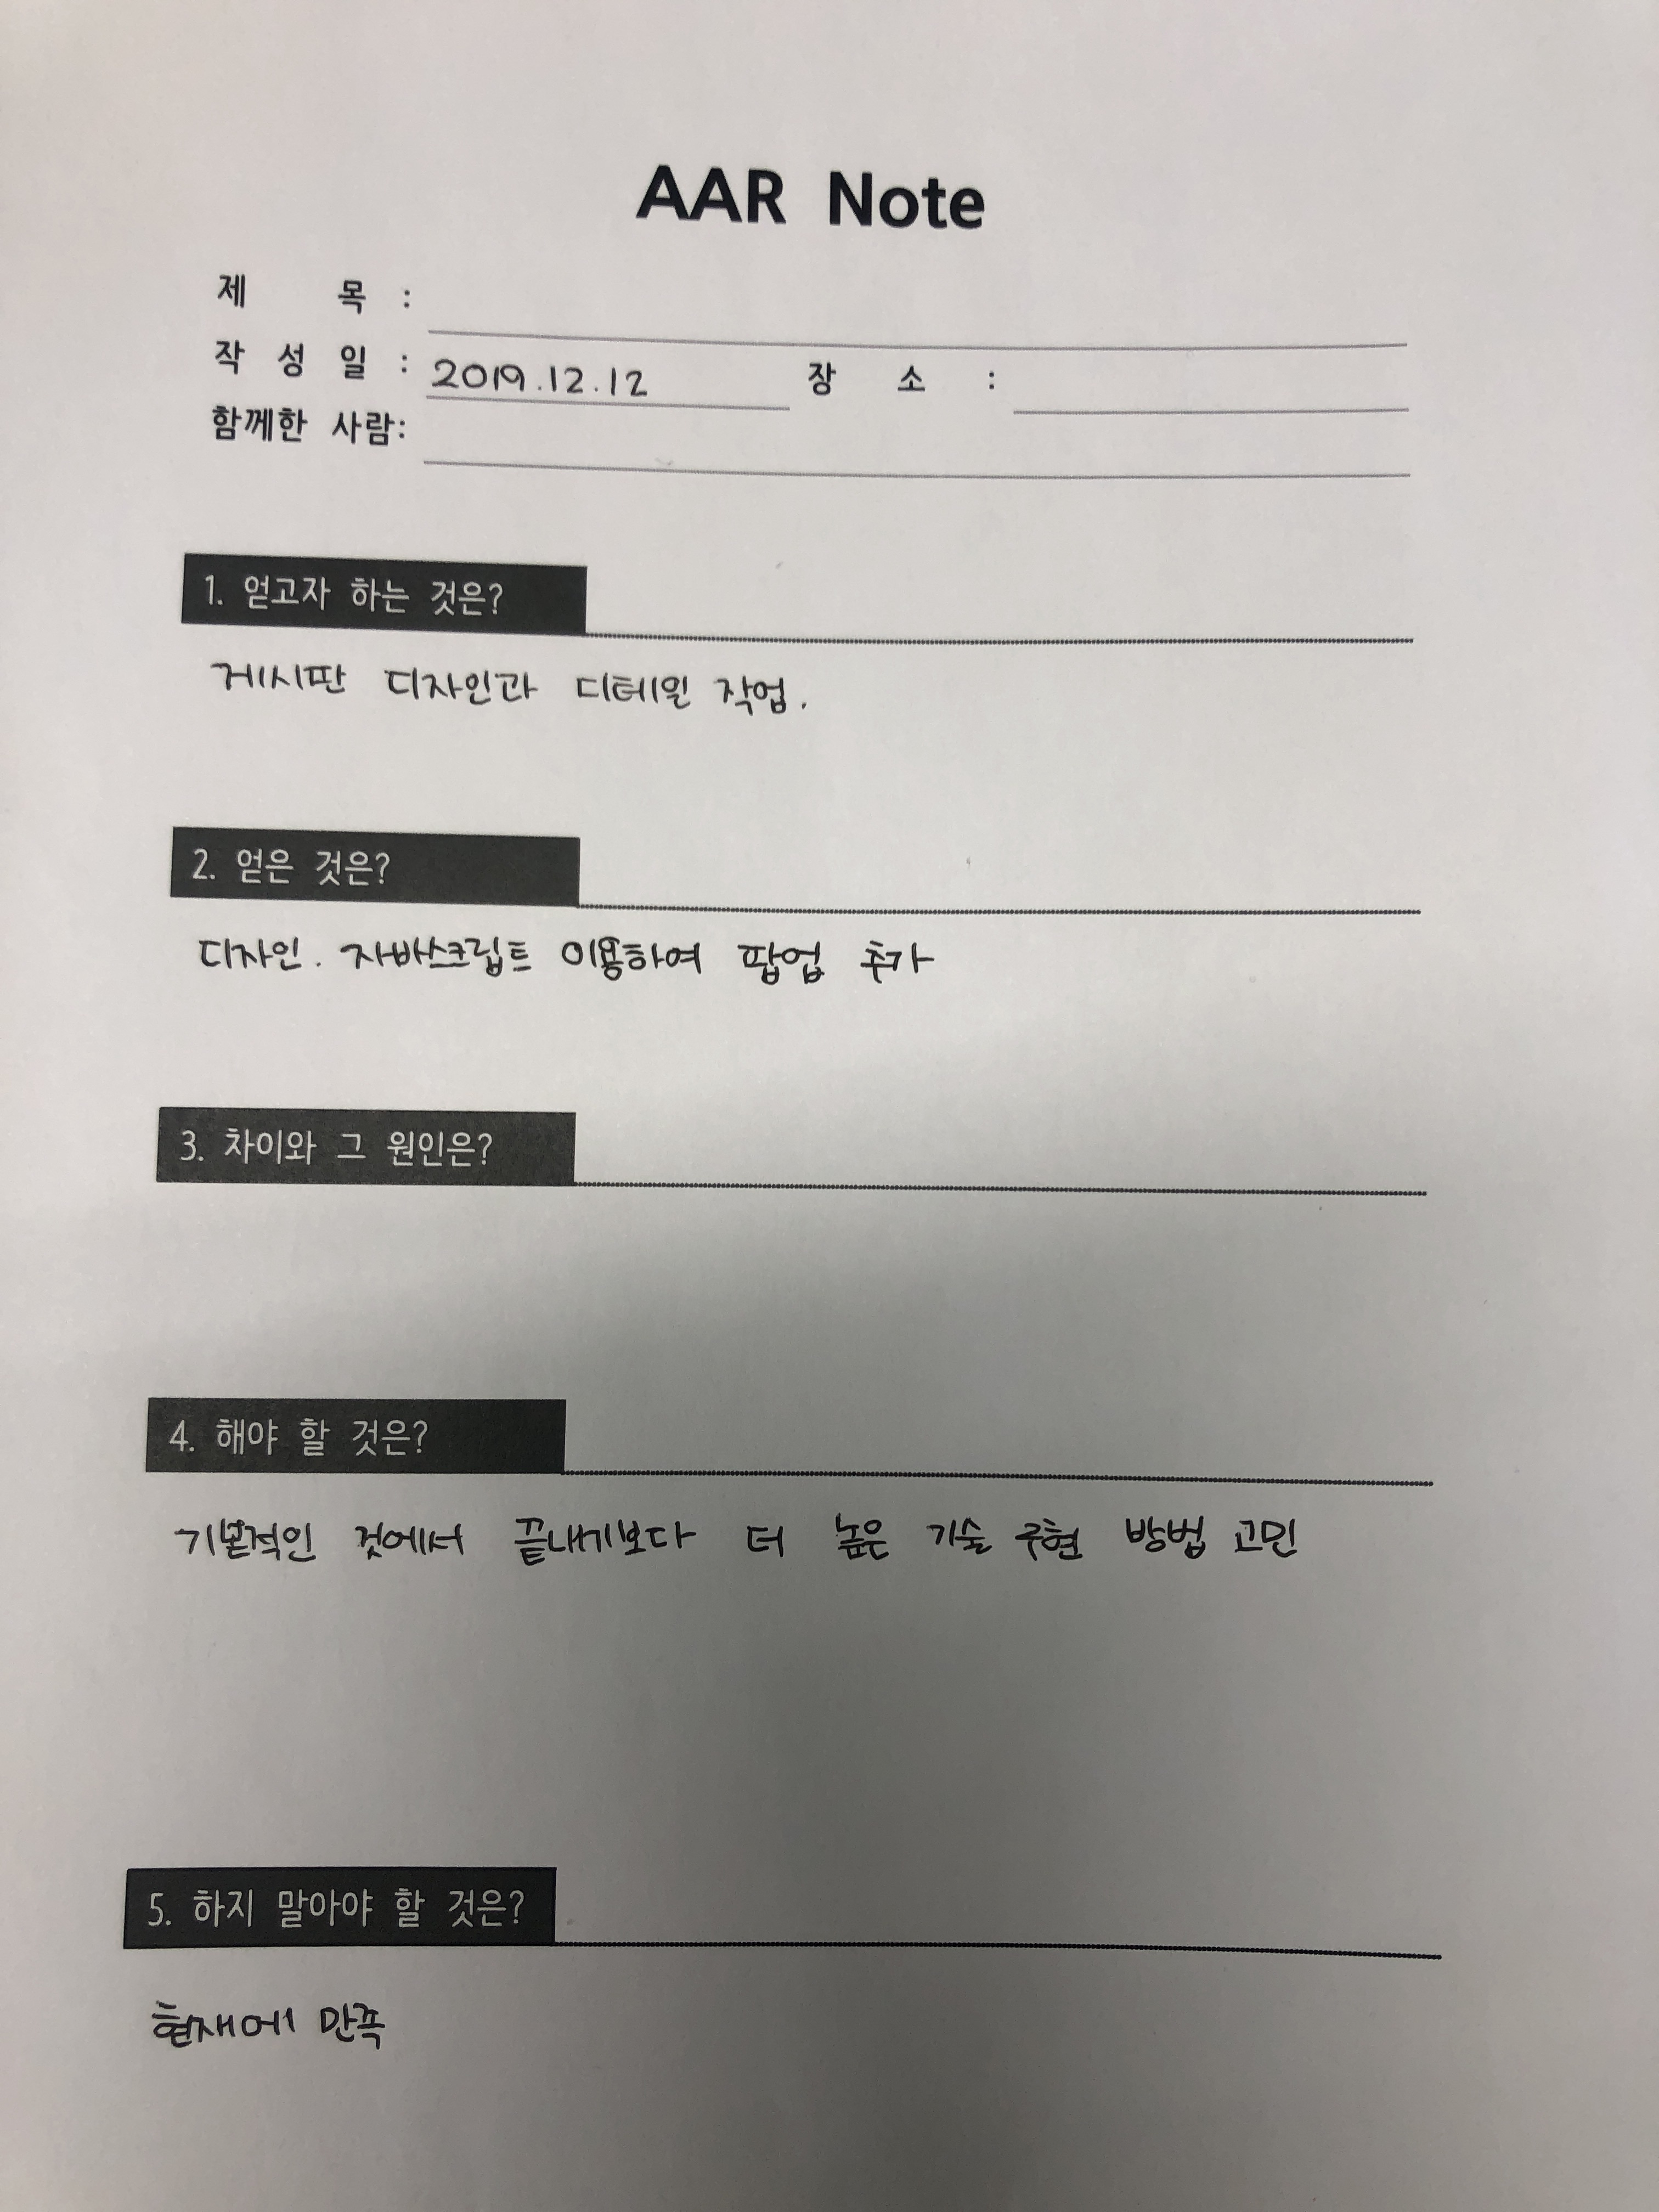 AAR Note
제 목 :
작 성 일 : 2019.12.12 장 소 :
함께한 사람:
1. 얻고자 하는 것은?
게시판 디자인과 디테일 작업.
2. 얻은 것은?
디자인. 자바스크립트 이용하여 팝업 추가
3. 차이와 그 원인은?
4. 해야 할 것은?
기본적인 것에서 끝내기보다 더 높은 기술 구현 방법 고민
5. 하지 말아야 할 것은?
현재에 만족